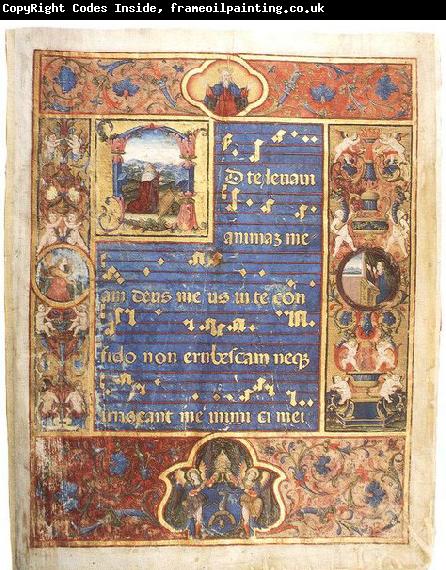 CopyRight Codes Inside, frameoilpainting.co.uk
D te levaui
animaz me
am deus me us in te con
fido non erubescam neqz
irrideant me inimi ci mei